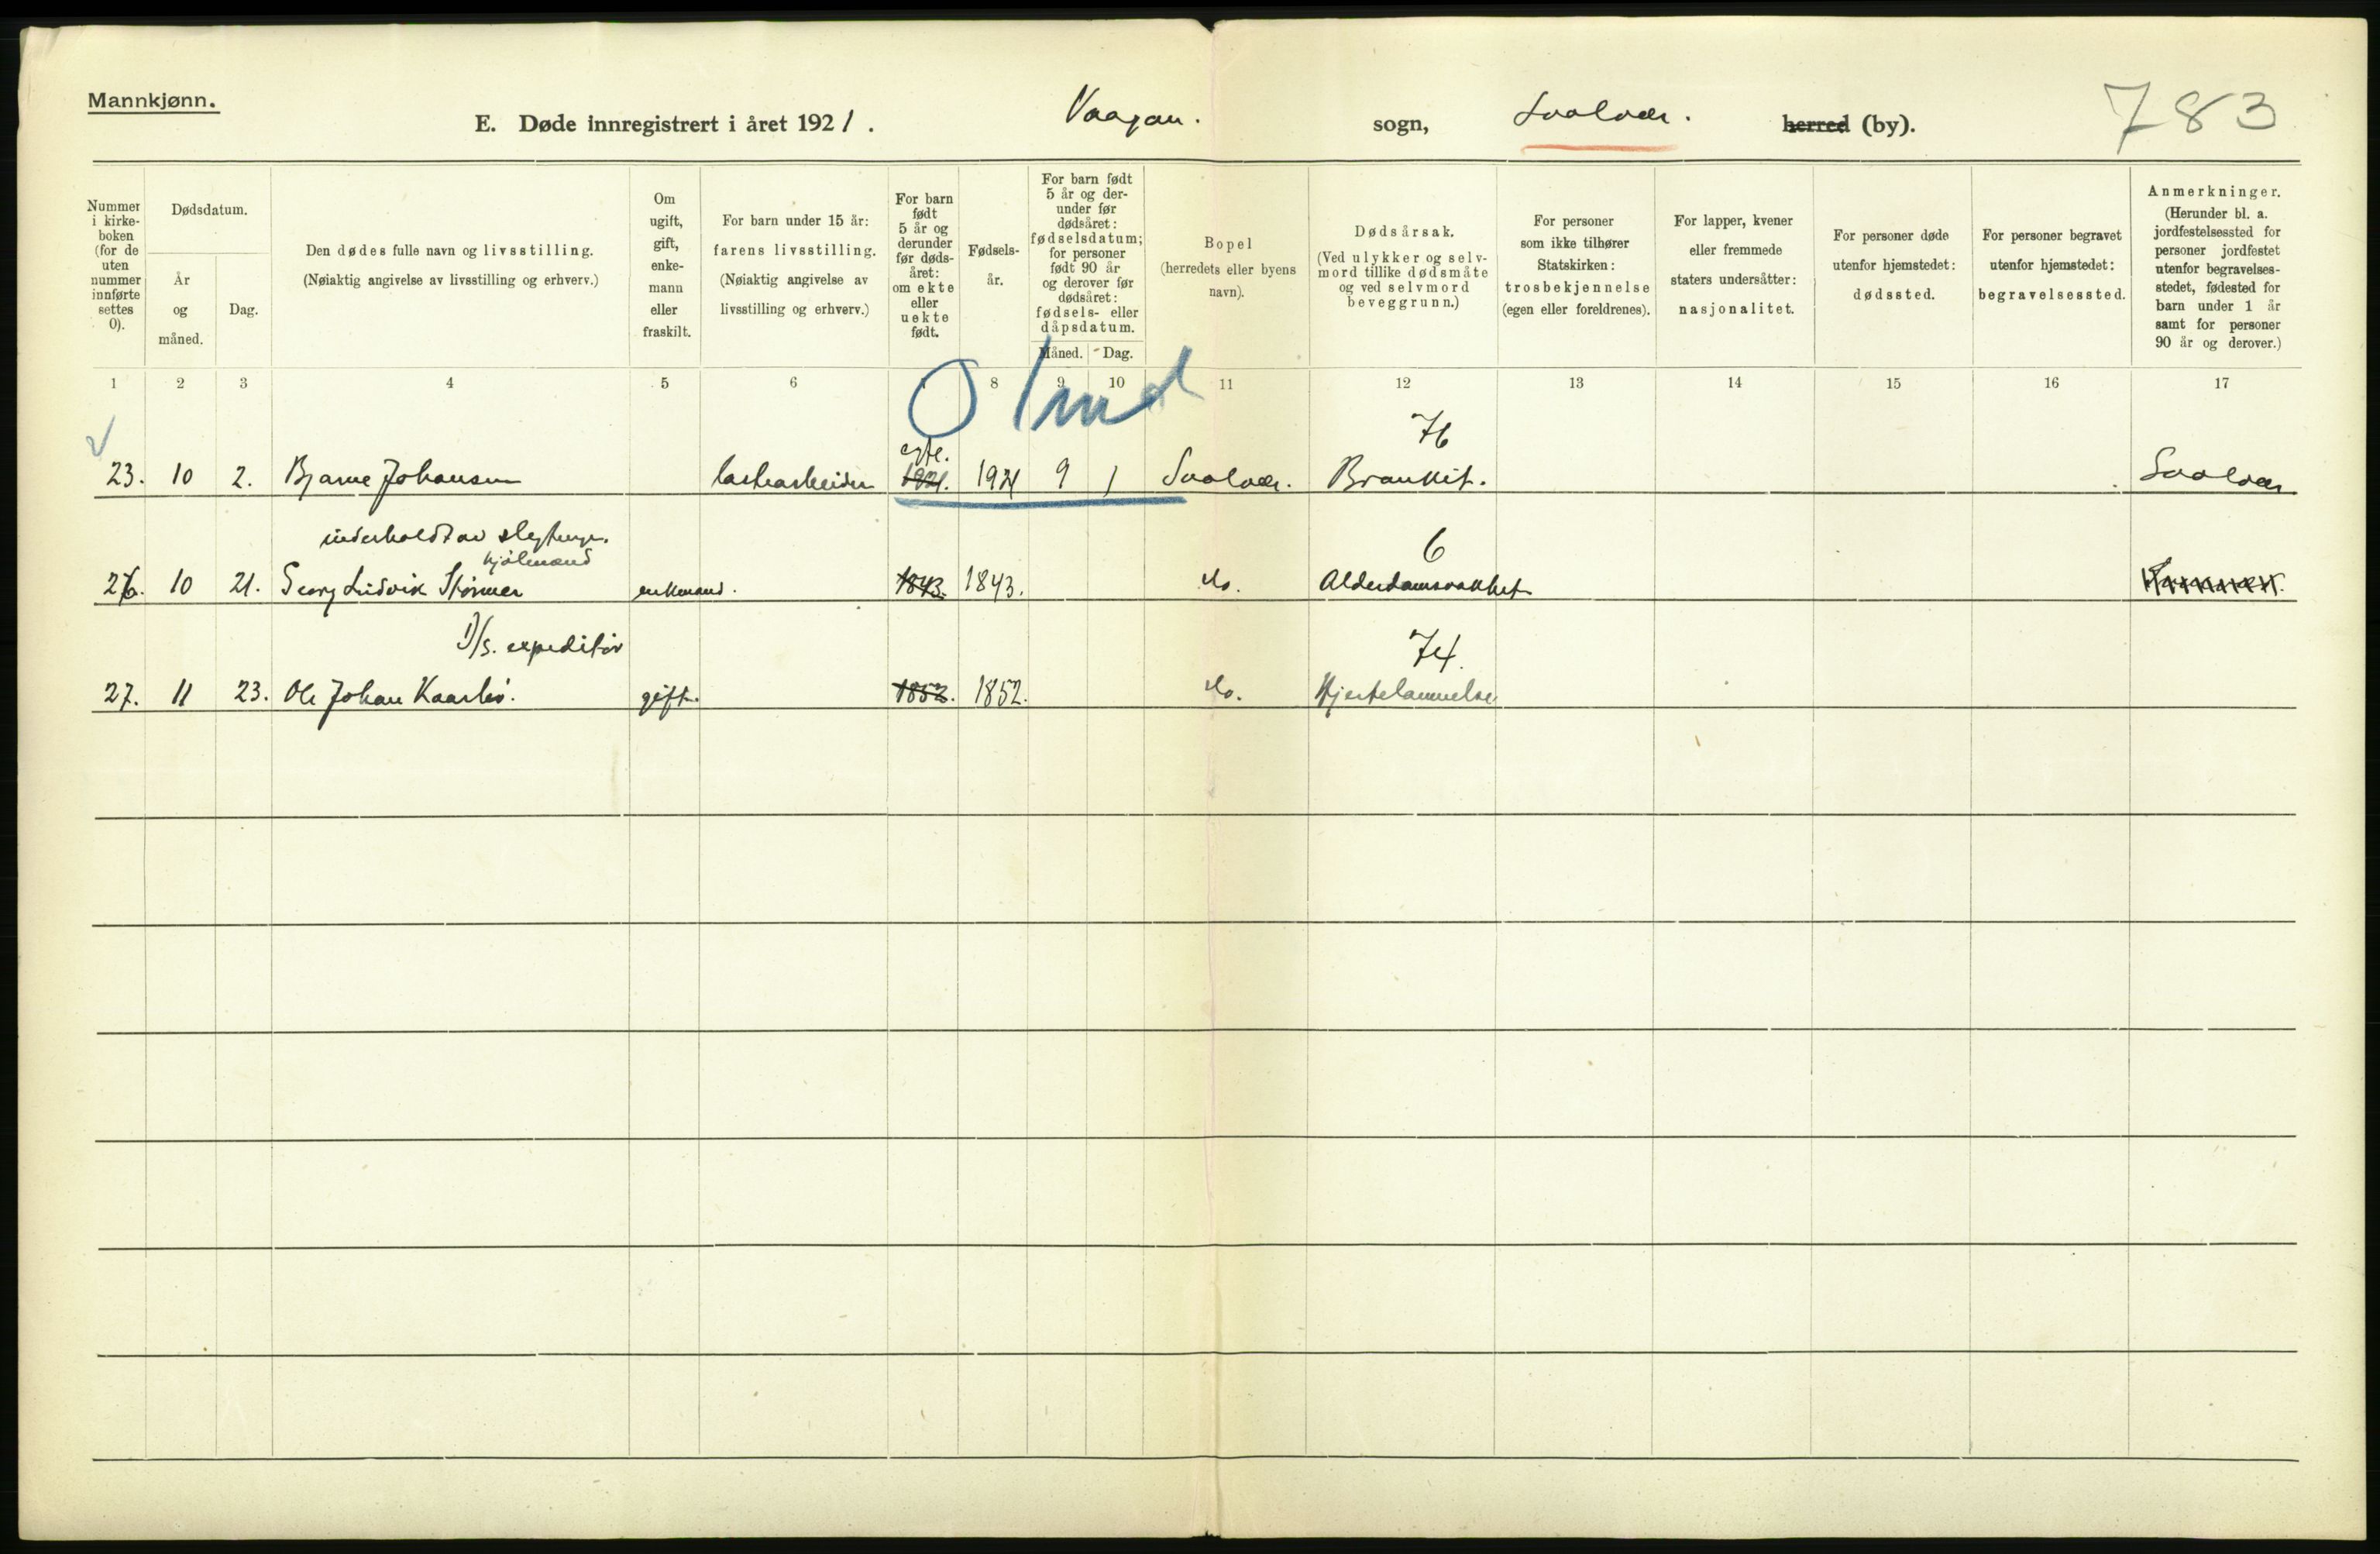 Mannkjønn.
E. Døde innregistrert i året 1921. Vaagan. sogn, Svolvær. herred (by). 783
Nummer i kirke-boken (for de uten nummer innførte settes 0).
Dødsdatum.
År og måned.
Dag.
Den dødes fulle navn og livsstilling.
(Nøiaktig angivelse av livsstilling og erhverv.)
Om ugift, gift, enke-mann eller fraskilt.
For barn under 15 år:
farens livsstilling.
(Nøiaktig angivelse av livsstilling og erhverv.)
For barn født 5 år og derunder før døds-året: om ekte eller uekte født.
Fødsels-år.
For barn født 5 år og der-under før dødsåret: fødselsdatum; for personer født 90 år og derover før dødsåret: fødsels- eller dåpsdatum.
Måned. Dag.
Bopel
(herredets eller byens navn).
Dødsårsak.
(Ved ulykker og selv-mord tillike dødsmåte og ved selvmord beveggrunn.)
For personer som ikke tilhører Statskirken:
trosbekjennelse
(egen eller foreldrenes).
For lapper, kvener eller fremmede staters undersåtter:
nasjonalitet.
For personer døde utenfor hjemstedet:
dødssted.
For personer begravet utenfor hjemstedet:
begravelsessted.
Anmerkninger.
(Herunder bl. a. jordfestelsessted for personer jordfestet utenfor begravelses-stedet, fødested for barn under 1 år samt for personer 90 år og derover.)
1 2 3 4 5 6 8 9 10 11 12 13 14 15 16 17
0 1 md
76
egte.
23. 10 2. Bjarne Johansen 1921. 1921 9 1 Svolvær. Svolvær
6
26. 10 21. Georg Ludvik Størmer enkemand. 1843. 1843. do. Alderdomssvakhet
D/s. expeditør
74.
27. 11 23. Ole Johan Kaarbø. gift. 1852. 1852. do. Hjertelammelse